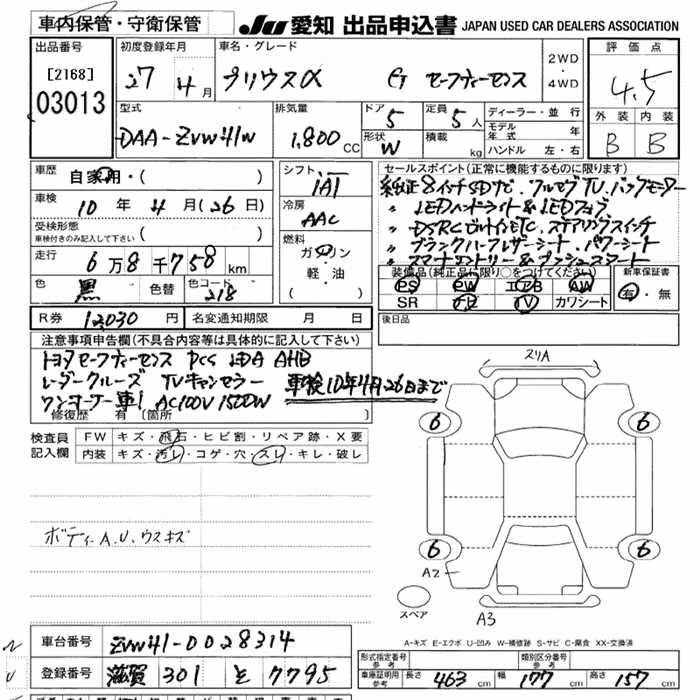 車内保管・守衛保管 JU 愛知 出品申込書 JAPAN USED CAR DEALERS ASSOCIATION
出品番号 初度登録年月 車名・グレード 2WD・4WD 評価点
[2168] 27年4月 プリウスα G セーフティーセンス 4.5
03013 外装 内装
型式 排気量 ドア 5 定員 5人 ディーラー・並行 B B
DAA-ZVW41W 1,800cc 形状 W 積載 kg モデル年式 年
ハンドル 左・右
車歴 自家用・( ) シフト セールスポイント(正常に機能するものに限ります)
車検 10年4月(26日) IAT 純正8インチSDナビ.フルセグTV.バックモニター
受検形態 冷房 〃 LEDヘッドライト&LEDフォグ
車検付きのみ記入して下さい ( ) AAC 〃 DSRCビルトインETC.ステアリングスイッチ
走行 6万8千758km 燃料 〃 ブラックハーフレザーシート.パワーシート
色 黒 色替 色コード 218 ガソリン 〃 スマートエントリー&プッシュスタート
軽・油 装備品(純正品に限り○をつけてください) 新車保証書
( ) PS PW エアB AW 有・無
SR ナビ TV カワシート
R券 12030円 名変通知期限 月 日 後日品
注意事項申告欄(不具合内容等は具体的に記入して下さい)
トヨタセーフティーセンス PCS LDA AHB
レーダークルーズ TVキャンセラー 車検10年4月26日まで
ワンオーナー車! AC100V 1500W
修復歴 有 (箇所
検査員 FW キズ・飛石・ヒビ割・リペア跡・X要
記入欄 内装 キズ・汚レ・コゲ・穴・スレ・キレ・破レ
スリA
6 6
6 6
ボディA.U.ウスキズ
A2
スペア A3
A-キズ E-エクボ U-凹み W-補修跡 S-サビ C-腐食 XX-交換済
車台番号 ZVW41-0028314
登録番号 滋賀 301 と 7795
型式指定番号 参考 類別区分番号 参考
車庫証明用 参考 長さ 463cm 幅 177cm 高さ 157cm